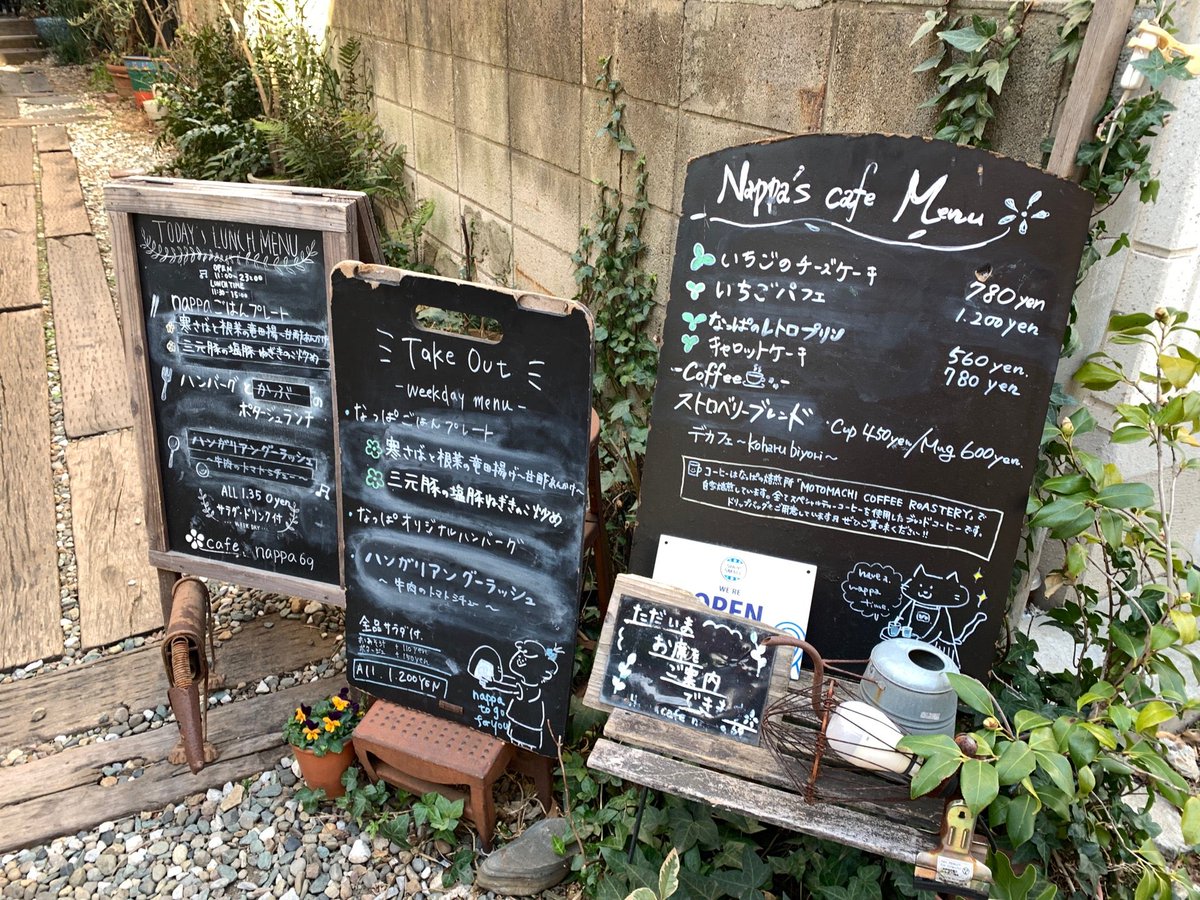 TODAY's LUNCH MENU
OPEN
11:00-23:00
LUNCH TIME
11:30-15:00
nappaごはんプレート
寒さばと根菜の竜田揚〜甘酢あんかけ
三元豚の塩豚ねぎきのこ炒め
ハンバーグと かぶ の
ポタージュランチ
ハンガリアングーラッシュ
〜牛肉のトマトシチュー〜
ALL 1.350yen
サラダ・ドリンク付
cafe nappa69
Take Out
-weekday menu-
・なっぱごはんプレート
寒さばと根菜の竜田揚げ〜甘酢あんかけ〜
三元豚の塩豚ねぎきのこ炒め
・なっぱオリジナルハンバーグ
・ハンガリアングーラッシュ
〜牛肉のトマトシチュー〜
全品サラダ付.
All 1.200YEN
nappa
to go
for you
Nappa's cafe Menu
いちごのチーズケーキ 780yen
いちごパフェ 1.200yen
なっぱのレトロプリン 560yen
キャロットケーキ 780yen
-Coffee
ストロベリーブレンド ・Cup 450yen/Mug 600yen.
デカフェ〜koharu biyori〜
コーヒーはなっぱの焙煎所「MOTOMACHI COFFEE ROASTERY」で
自家焙煎しています。全てスペシャルティーコーヒーを使用したグッドコーヒーです。
ドリップバッグもご用意しています♬ぜひご賞味ください!!
have a
nappa
time
WE'RE
OPEN
ただいま
お席を
ご案内
できます
cafe n
69